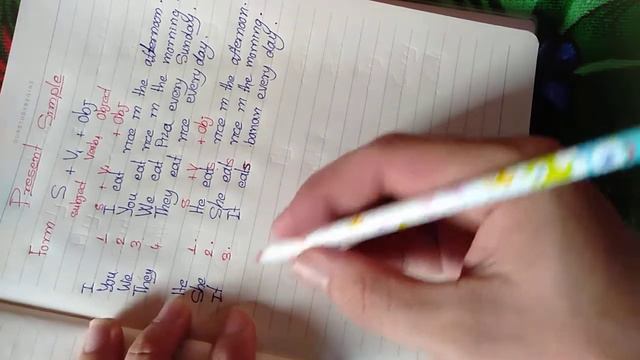 Present Simple
Form S + V1 + Obj
subject Verb1 object
S + V1 + Obj
I 1 I eat rice in the afternoon.
You 2 You eat rice in the morning.
We 3 We eat Piza every Sunday.
They 4 They eat rice every day.
S + V + Obj
He 1. He eats rice in the afternoon.
She 2. She eats rice in the morning.
It 3. It eats banana every day.